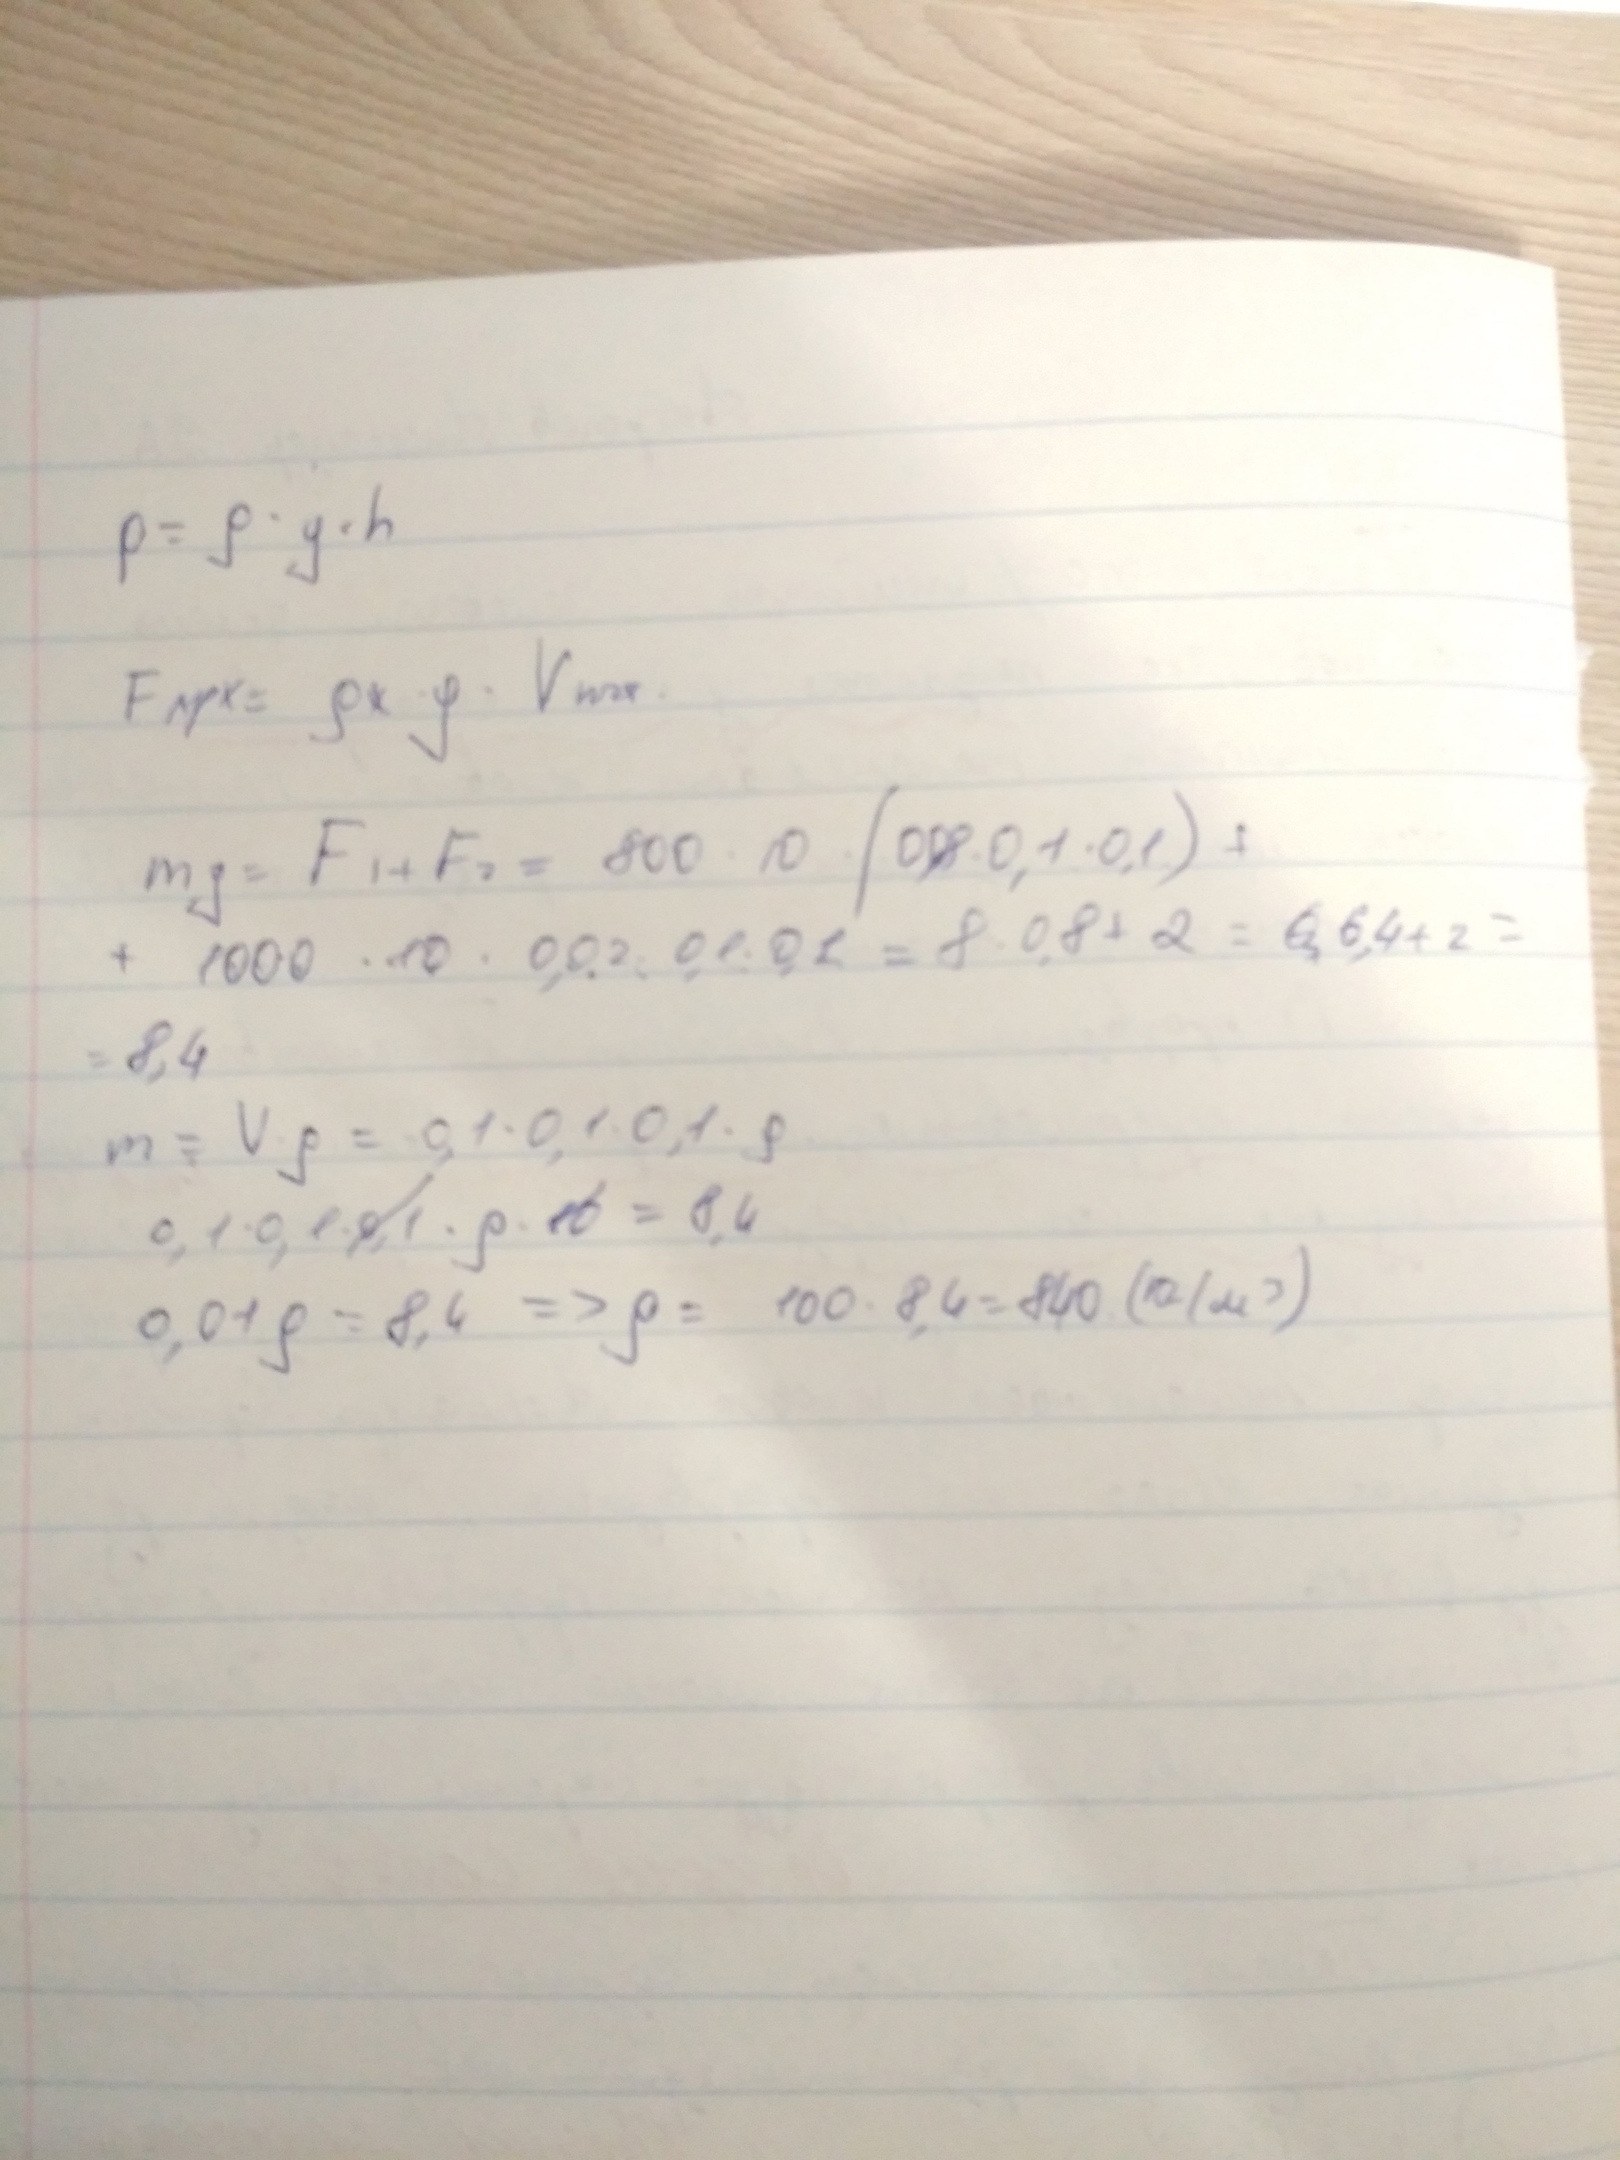 p = ρ · g · h
Fарх = ρж · g · Vпогр.
mg = F₁ + F₂ = 800 · 10 · (0,08 · 0,1 · 0,1) +
+ 1000 · 10 · 0,02 · 0,1 · 0,1 = 8 · 0,8 + 2 = 6,4 + 2 =
= 8,4
m = V · ρ = 0,1 · 0,1 · 0,1 · ρ
0,1 · 0,1 · 0,1 · ρ · 10 = 8,4
0,01ρ = 8,4 => ρ = 100 · 8,4 = 840 (кг/м³)